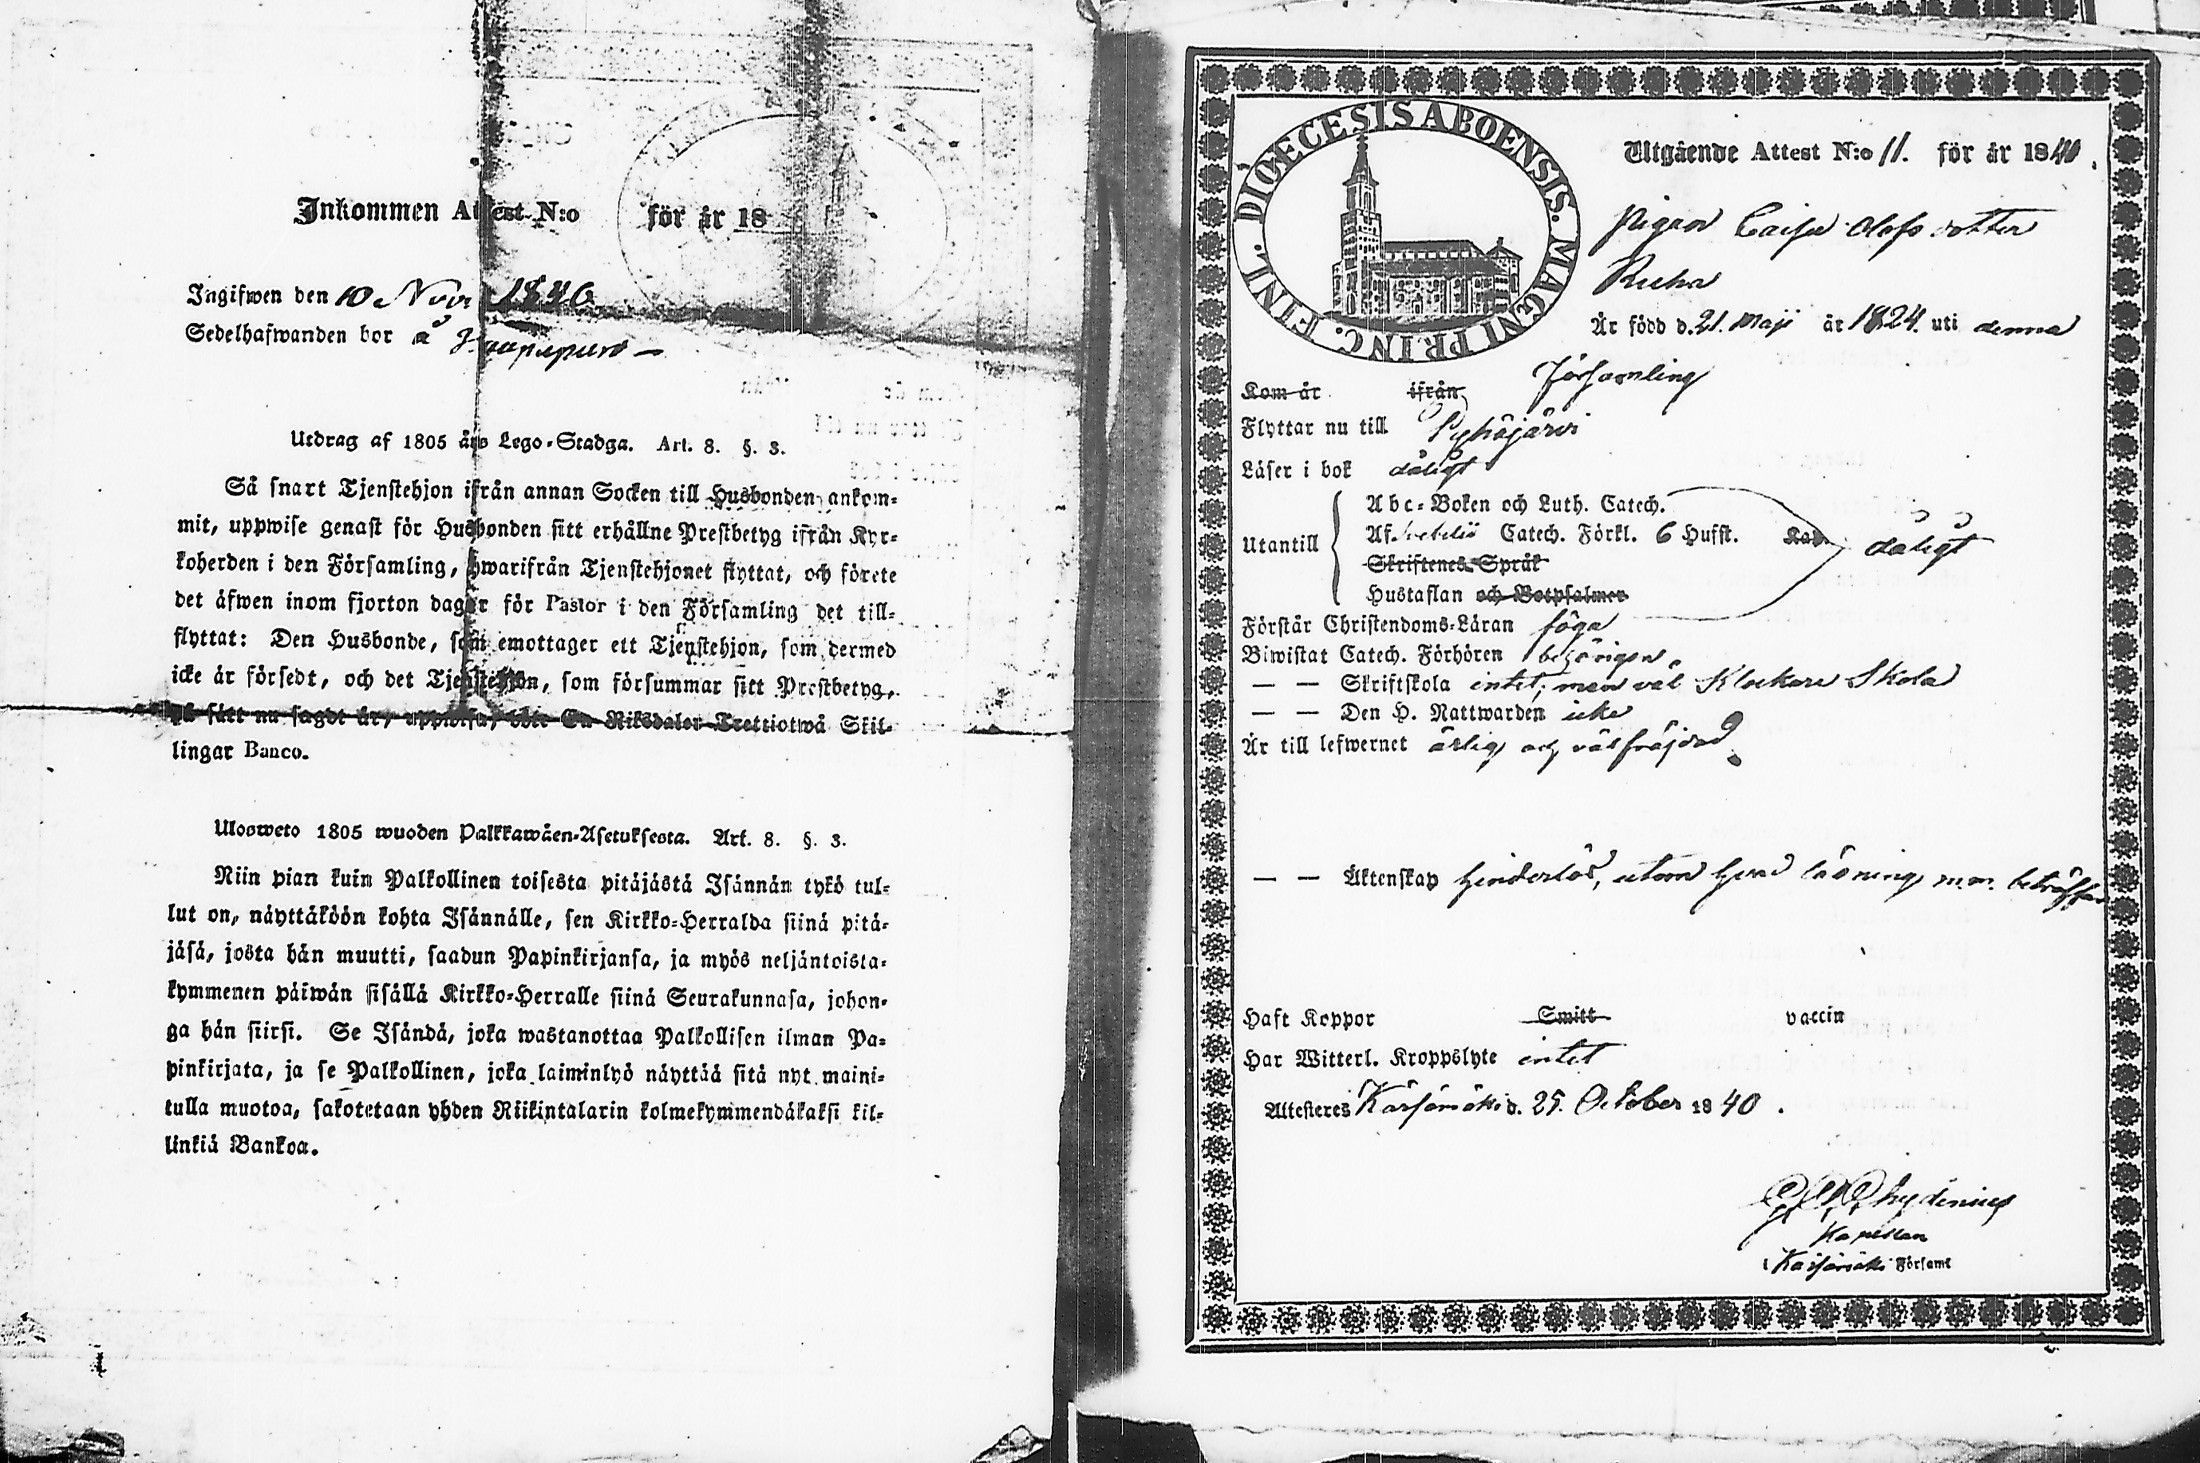 Inkommen Attest N:o för år 18
Ingifwen den 10 Nov 1840
Sedelhafwanden bor å
Utdrag af 1805 års Lego-Stadga. Art. 8. §. 3.
Så snart Tjenstehjon ifrån annan Socken till Husbonden ankom-
mit, uppwise genast för Husbonden sitt erhållne Prestbetyg ifrån Kyr-
koherden i den Församling, hwarifrån Tjenstehjonet flyttat, och förete
det äfwen inom fjorton dagar för Pastor i den Församling det till-
flyttat: Den Husbonde, som emottager ett Tjenstehjon, som dermed
icke är försedt, och det Tjenstehjon, som försummar sitt Prestbetyg,
på sätt nu sagdt är, uppwisa, böte En Riksdaler Trettiotwå Skil-
lingar Banco.
Ulosweto 1805 wuoden Palkkawäen-Asetuksesta. Art. 8. §. 3.
Niin pian kuin Palkollinen toisesta pitäjästä Isännän tykö tul-
lut on, näyttäköön kohta Isännälle, sen Kirkko-Herralda siinä pitä-
jäsä, josta hän muutti, saadun Papinkirjansa, ja myös neljäntoista-
kymmenen päiwän sisällä Kirkko-Herralle siinä Seurakunnasa, johon-
ga hän siirsi. Se Isändä, joka wastanottaa Palkollisen ilman Pa-
pinkirjata, ja se Palkollinen, joka laiminlyö näyttää sitä nyt maini-
tulla muotoa, sakotetaan yhden Riikintalarin kolmekymmendäkaksi kil-
linkiä Bankoa.
DIOECESIS ABOENSIS. MAGNI PRINC. FINL.
Utgående Attest N:o 11. för år 1840.
Pigan Caisa Olofsdotter
Ruha
Är född d. 21. Maji år 1824. uti denna
Församling
Kom år ifrån
Flyttar nu till Pyhäjärvi
Läser i bok dåligt
Abc-Boken och Luth. Catech.
Utantill Af Catech. Förkl. 6 Hufst. Kap. dåligt
Skriftenes Språk
Hustaflan och Botpsalmer
Förstår Christendoms-Läran föga
Biwistat Catech. Förhören behörigen
— — Skriftskola intet, men väl Klockare Skola
— — Den H. Nattwarden icke
Är till lefwernet ärlig och välfräjdad
— — Äktenskap hinderlös, utom hvad läsning m.m. beträffar
Haft Koppor Smitt vaccin
Har Witterl. Kroppslyte intet
Attesteres Kärsämäki d. 25. October 1840.
Chydenius
Kapellan
i Kärsämäki Församl